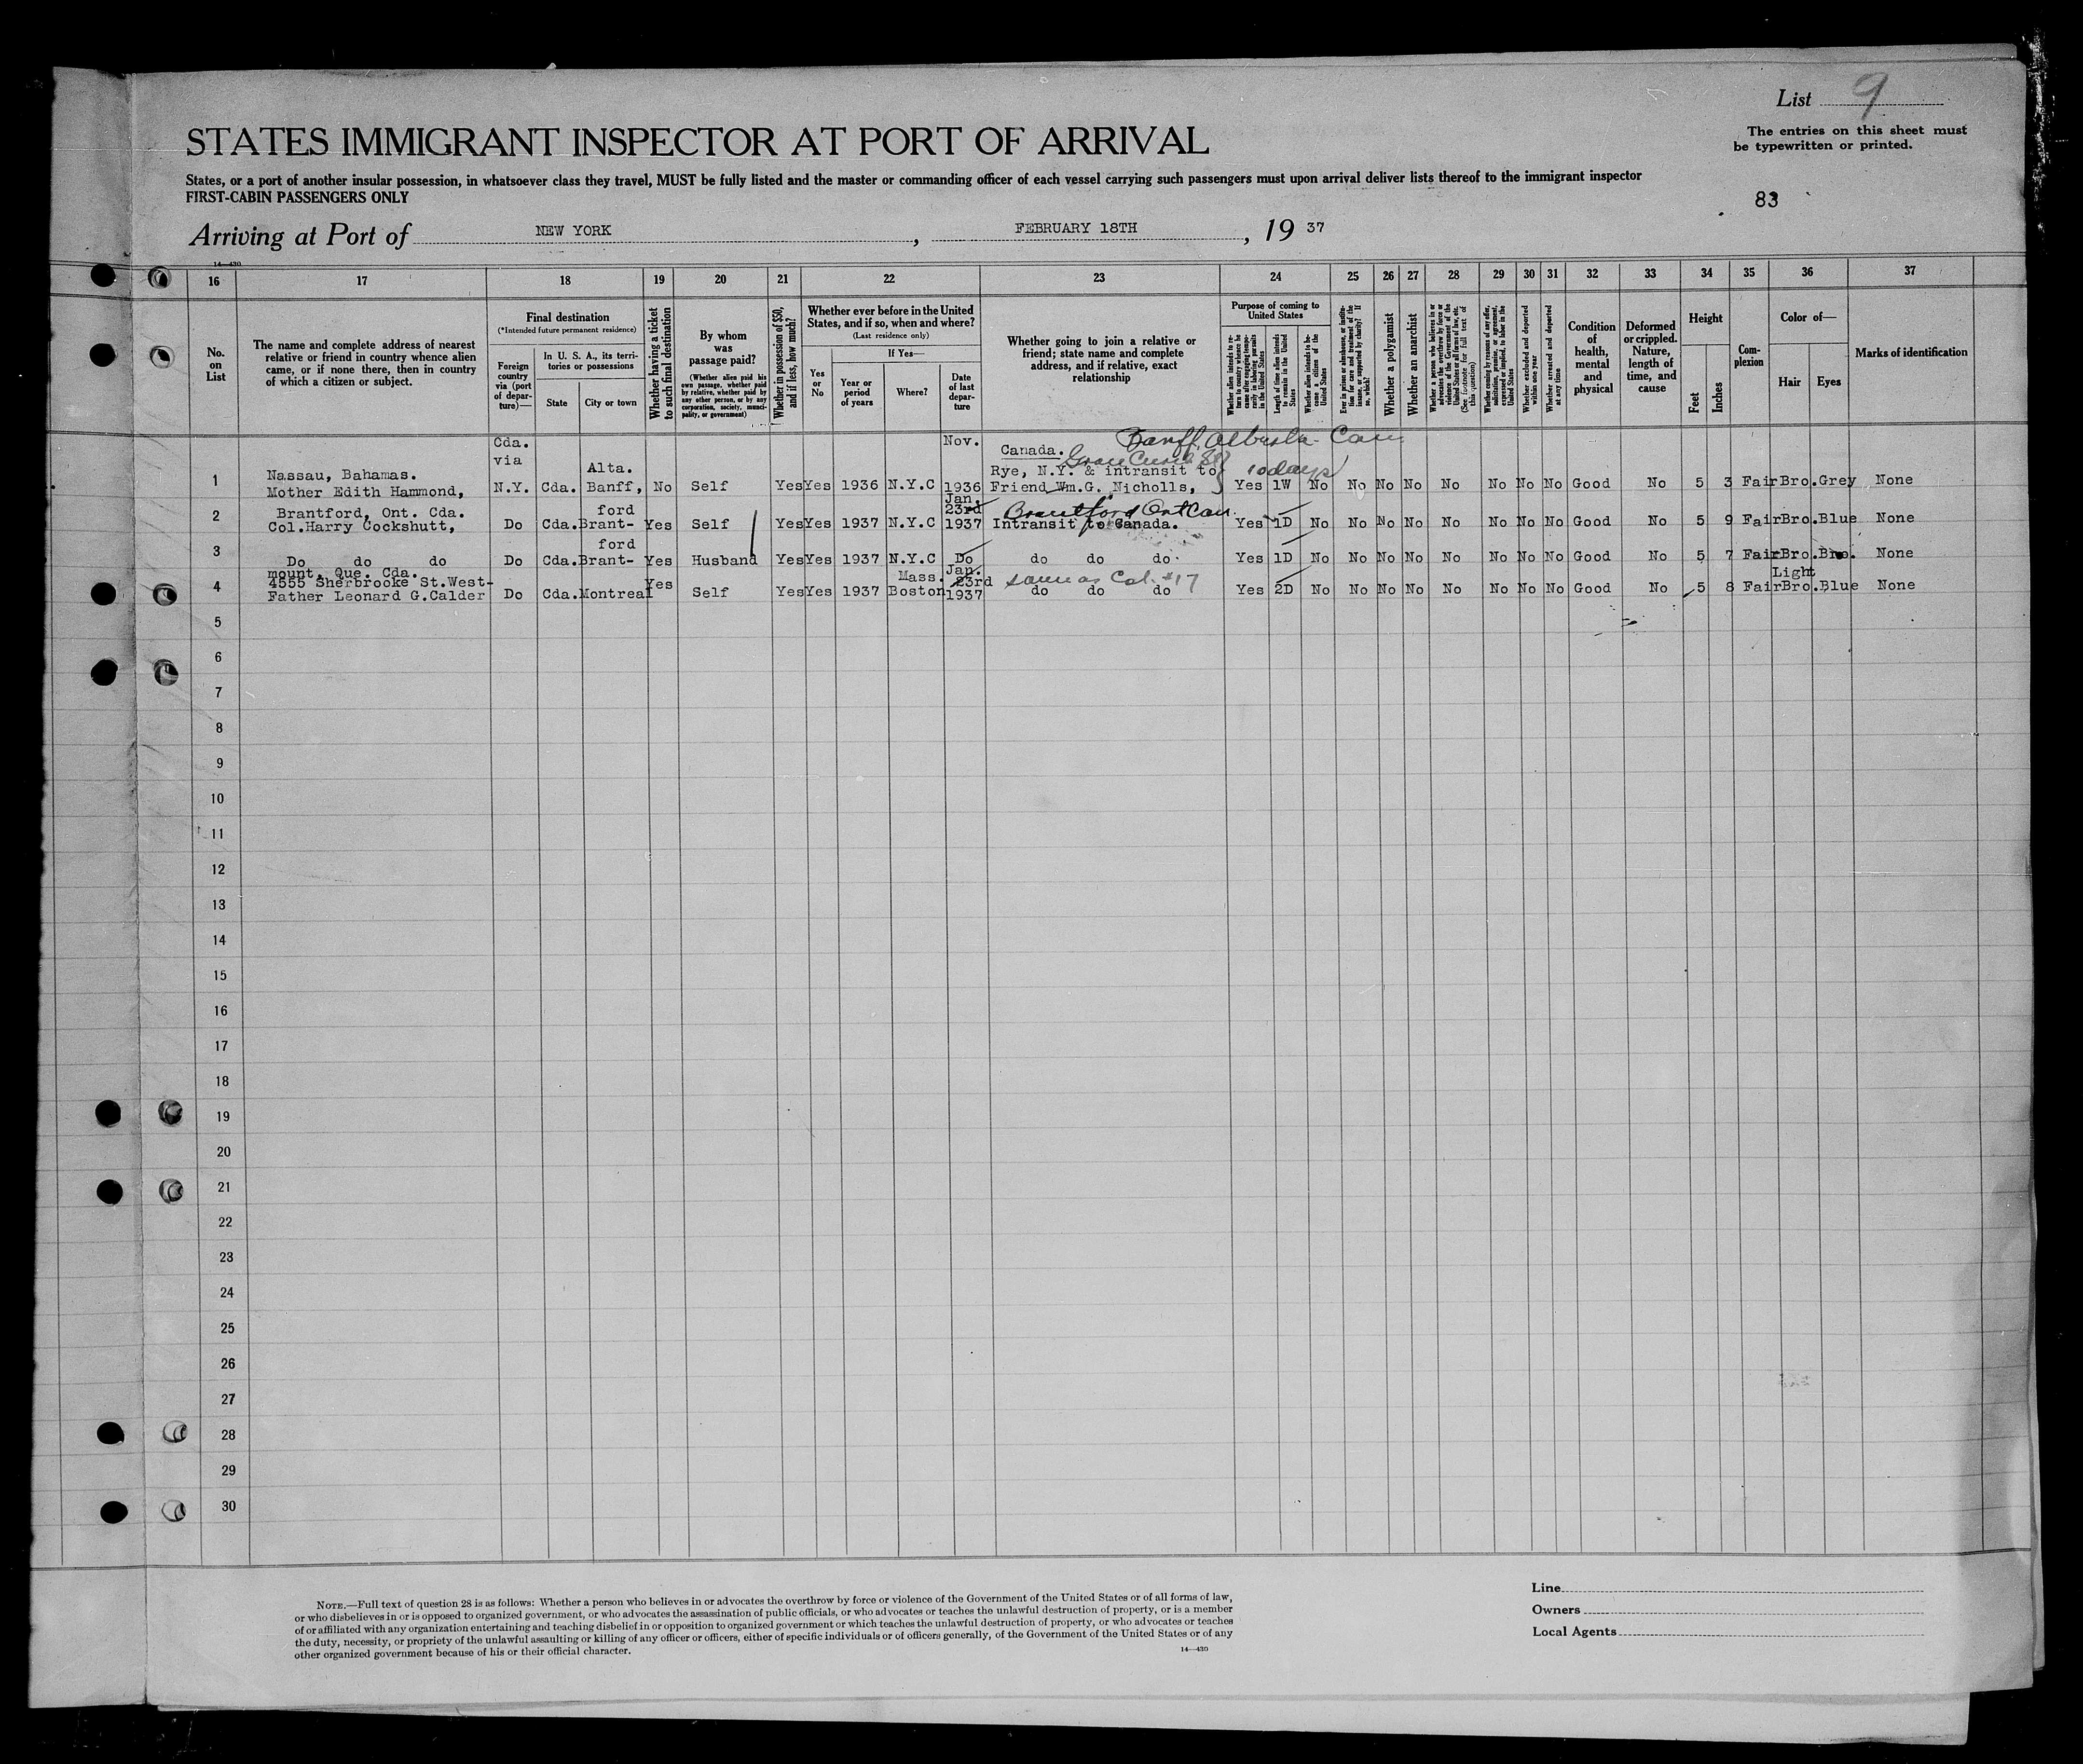 List 9
STATES IMMIGRANT INSPECTOR AT PORT OF ARRIVAL
The entries on this sheet must
be typewritten or printed.
States, or a port of another insular possession, in whatsoever class they travel, MUST be fully listed and the master or commanding officer of each vessel carrying such passengers must upon arrival deliver lists thereof to the immigrant inspector
FIRST-CABIN PASSENGERS ONLY
83
Arriving at Port of NEW YORK, FEBRUARY 18TH, 19 37
14—430
16 17 18 19 20 21 22 23 24 25 26 27 28 29 30 31 32 33 34 35 36 37
No.
on
List
The name and complete address of nearest
relative or friend in country whence alien
came, or if none there, then in country
of which a citizen or subject.
Final destination
(*Intended future permanent residence)
Foreign
country
via (port
of depar-
ture)—
In U. S. A., its terri-
tories or possessions
State
City or town
Whether having a ticket
to such final destination
By whom
was
passage paid?
(Whether alien paid his
own passage, whether paid
by relative, whether paid by
any other person, or by any
corporation, society, munici-
pality, or government)
Whether in possession of $50,
and if less, how much?
Whether ever before in the United
States, and if so, when and where?
(Last residence only)
Yes
or
No
If Yes—
Year or
period
of years
Where?
Date
of last
depar-
ture
Whether going to join a relative or
friend; state name and complete
address, and if relative, exact
relationship
Purpose of coming to
United States
Whether alien intends to re-
turn to country whence he
came after engaging tempo-
rarily in laboring pursuits
in the United States
Length of time alien intends
to remain in the United
States
Whether alien intends to be-
come a citizen of the
United States
Ever in prison or almshouse, or institu-
tion for care and treatment of the
insane, or supported by charity? If
so, which?
Whether a polygamist
Whether an anarchist
Whether a person who believes in or
advocates the overthrow by force or
violence of the Government of the
United States or all forms of law, etc.
(See footnote for full text of
this question)
Whether coming by reason of any offer,
solicitation, promise, or agreement,
expressed or implied, to labor in the
United States
Whether excluded and deported
within one year
Whether arrested and deported
at any time
Condition
of
health,
mental
and
physical
Deformed
or crippled.
Nature,
length of
time, and
cause
Height
Feet
Inches
Com-
plexion
Color of—
Hair
Eyes
Marks of identification
Cda. Nov. Banff, Alberta Can
via Canada.
Alta. Rye, N.Y. & intransit to 10 days
Nassau, Bahamas.
1 Mother Edith Hammond, N.Y. Cda. Banff, No Self Yes Yes 1936 N.Y.C 1936 Friend Wm.G. Nicholls, Yes 1W No No No No No No No No Good No 5 3 Fair Bro. Grey None
Jan.
Brantford, Ont. Cda. ford 23rd Brantford Ont Can.
2 Col.Harry Cockshutt, Do Cda. Brant- Yes Self Yes Yes 1937 N.Y.C 1937 Intransit to Canada. Yes 1D No No No No No No No No Good No 5 9 Fair Bro. Blue None
ford
3 Do do do Do Cda. Brant- Yes Husband Yes Yes 1937 N.Y.C Do do do do Yes 1D No No No No No No No No Good No 5 7 Fair Bro. Bro. None
mount, Que. Cda. Jan. Light
4555 Sherbrooke St.West- Mass. 23rd same as Col. #17
4 Father Leonard G.Calder Do Cda. Montreal Yes Self Yes Yes 1937 Boston 1937 do do do Yes 2D No No No No No No No No Good No 5 8 Fair Bro. Blue None
5
6
7
8
9
10
11
12
13
14
15
16
17
18
19
20
21
22
23
24
25
26
27
28
29
30
NOTE.—Full text of question 28 is as follows: Whether a person who believes in or advocates the overthrow by force or violence of the Government of the United States or of all forms of law,
or who disbelieves in or is opposed to organized government, or who advocates the assassination of public officials, or who advocates or teaches the unlawful destruction of property, or is a member
of or affiliated with any organization entertaining and teaching disbelief in or opposition to organized government or which teaches the unlawful destruction of property, or who advocates or teaches
the duty, necessity, or propriety of the unlawful assaulting or killing of any officer or officers, either of specific individuals or of officers generally, of the Government of the United States or of any
other organized government because of his or their official character.
14—430
Line
Owners
Local Agents